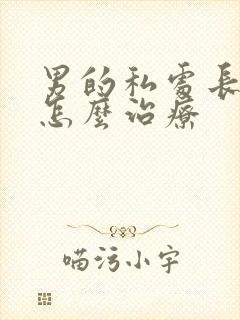 男的私處長
怎麼治療
喵污小字